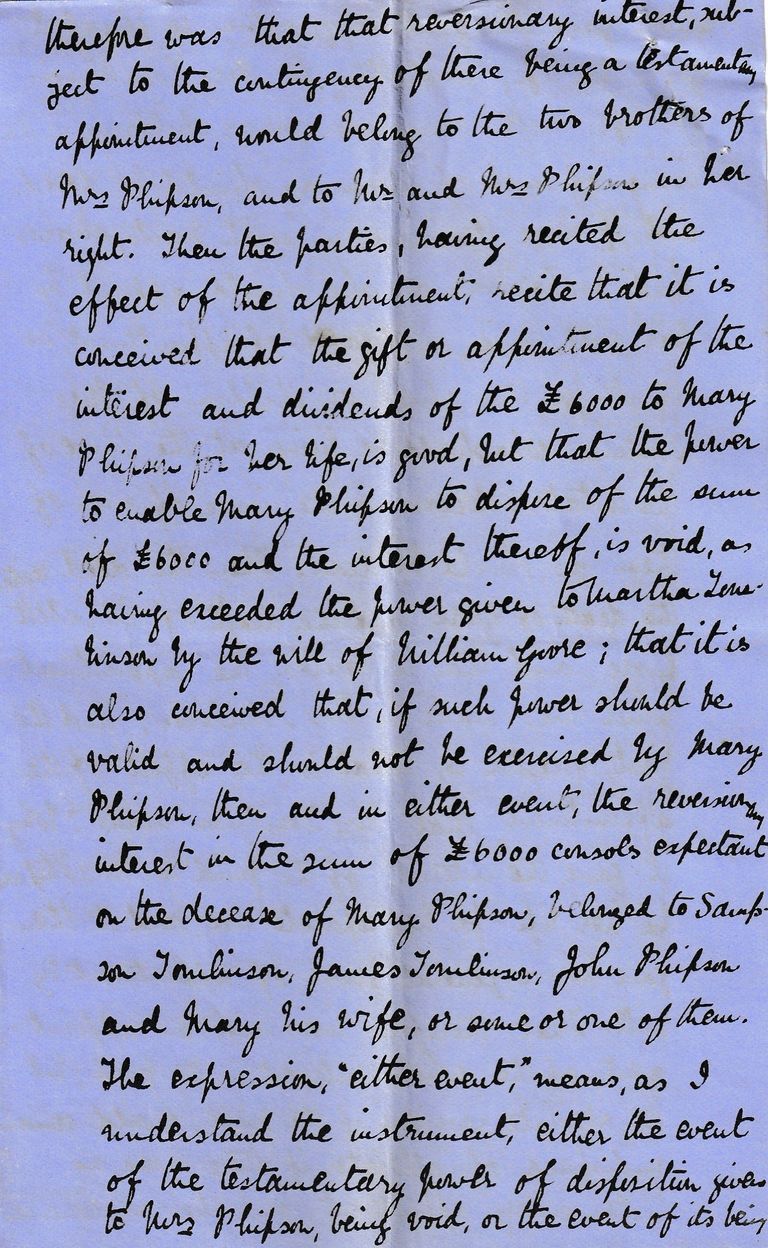 therefore was that that reversionary interest, sub-
ject to the contingency of there being a testamentary
appointment, would belong to the two brothers of
Mrs Phipson, and to Mr and Mrs Phipson in her
right. Then the parties, having recited the
effect of the appointment, recite that it is
conceived that the gift or appointment of the
interest and dividends of the £6000 to Mary
Phipson for her life, is good, but that the power
to enable Mary Phipson to dispose of the sum
of £6000 and the interest thereof, is void, as
having exceeded the power given to Martha Tom-
linson by the will of William Goore; that it is
also conceived that, if such power should be
valid and should not be exercised by Mary
Phipson, then and in either event, the reversionary
interest in the sum of £6000 consols expectant
on the decease of Mary Phipson, belonged to Samp-
son Tomlinson, James Tomlinson, John Phipson
and Mary his wife, or some or one of them.
The expression, "either event," means, as I
understand the instrument, either the event
of the testamentary power of disposition given
to Mrs Phipson, being void, or the event of its being